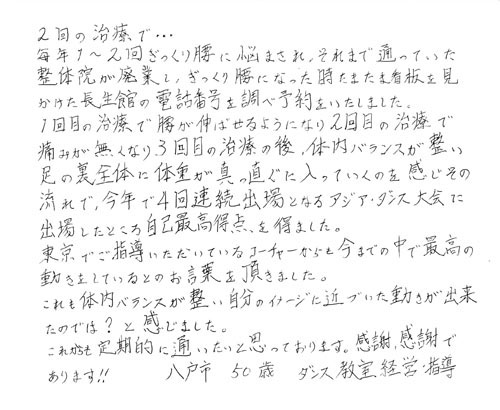 2回の治療で…
毎年1〜2回ぎっくり腰に悩まされ、それまで通っていた
整体院が廃業し、ぎっくり腰になった時たまたま看板を見
かけた長生館の電話番号を調べ予約をいたしました。
1回目の治療で腰が伸ばせるようになり2回目の治療で
痛みが無くなり3回目の治療の後、体内バランスが整い
足の裏全体に体重が真っ直ぐに入っていくのを感じその
流れで、今年で4回連続出場となるアジア・ダンス大会に
出場したところ自己最高得点、を得ました。
東京でご指導いただいているコーチャーからも今までの中で最高の
動きをしているとのお言葉を頂きました。
これも体内バランスが整い自分のイメージに近づいた動きが出来
たのでは?と感じました。
これからも定期的に通いたいと思っております。感謝、感謝で
あります!! 八戸市 50歳 ダンス教室経営・指導